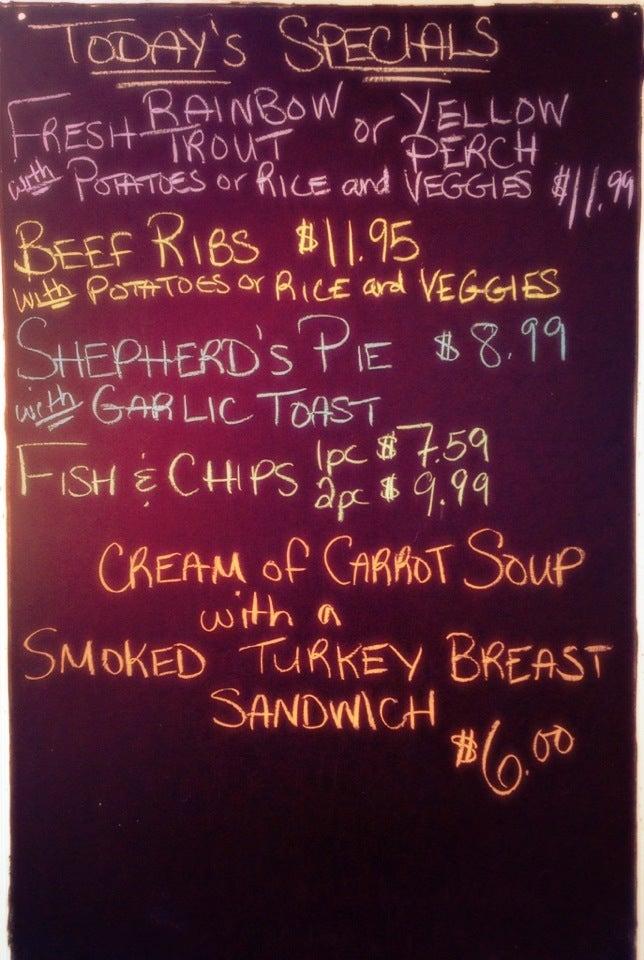 TODAY'S SPECIALS
FRESH RAINBOW TROUT or YELLOW PERCH
with POTATOES or RICE and VEGGIES $11.99
BEEF RIBS $11.95
with POTATOES or RICE and VEGGIES
SHEPHERD'S PIE $8.99
with GARLIC TOAST
FISH & CHIPS 1pc $7.59
2pc $9.99
CREAM OF CARROT SOUP
with a
SMOKED TURKEY BREAST
SANDWICH
$6.00